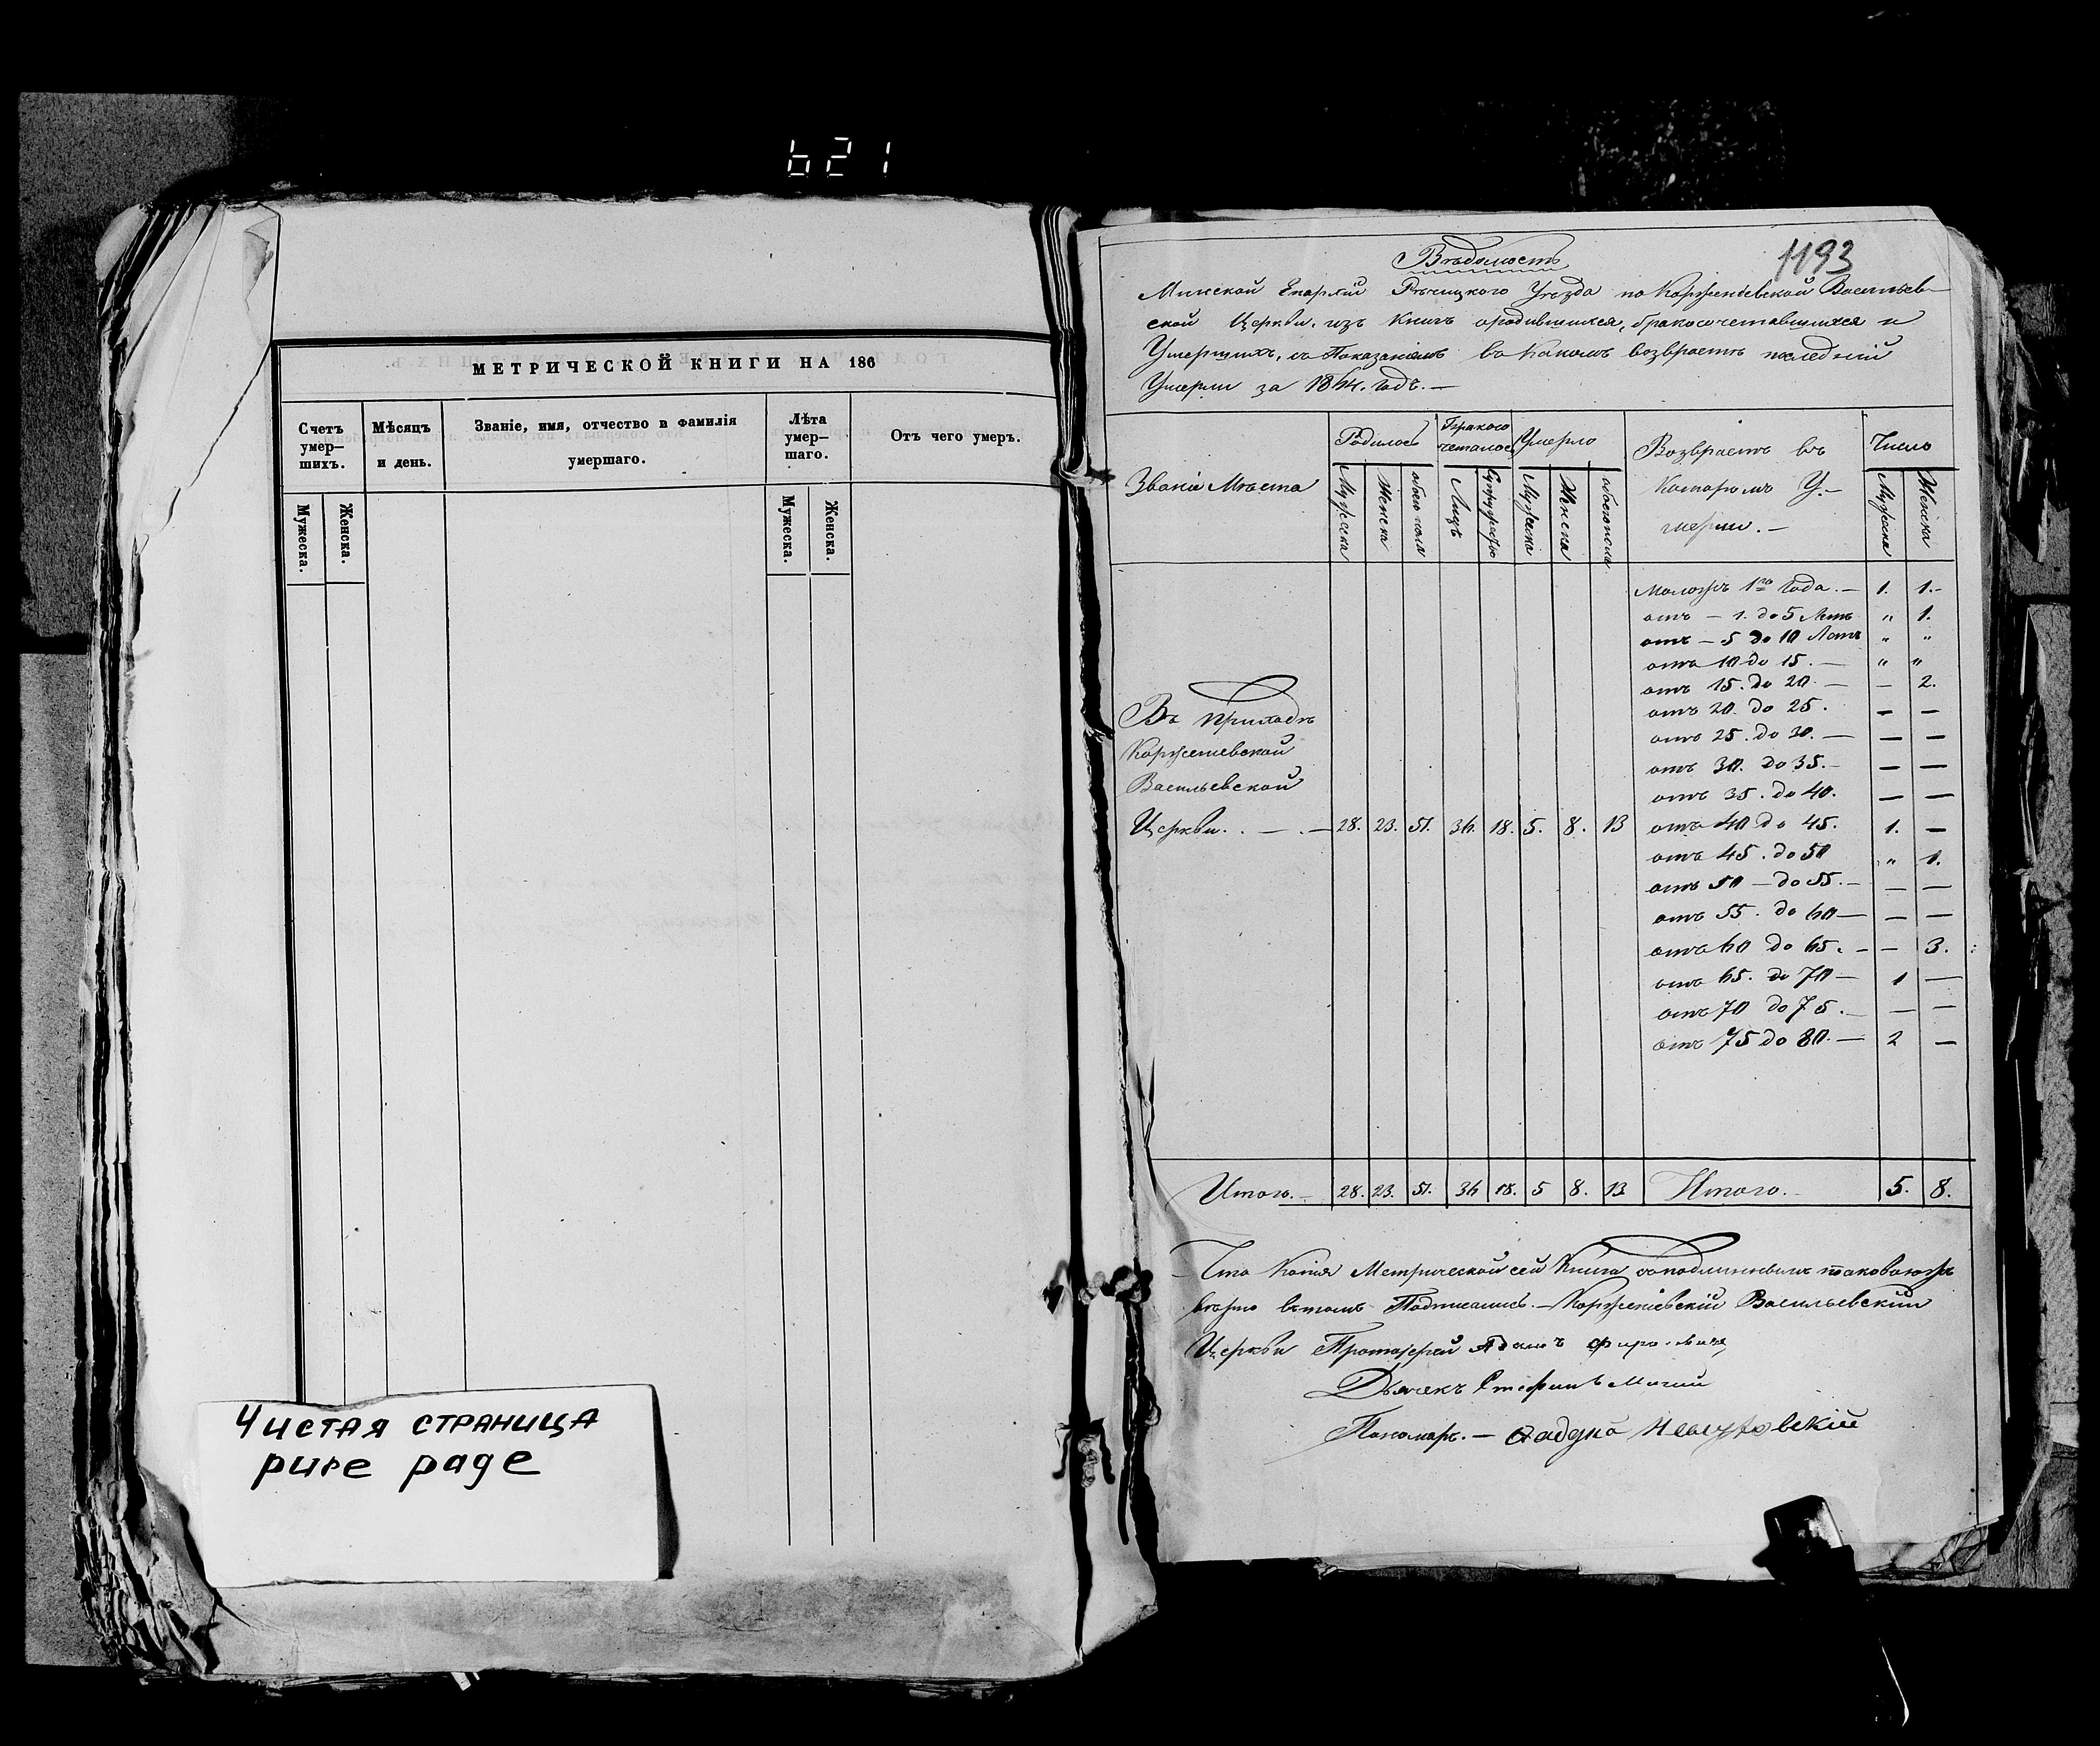 621
МЕТРИЧЕСКОЙ КНИГИ НА 186
Счетъ умер— шихъ.
Мѣсяцъ и день.
Званіе, имя, отчество и фамилія умершаго.
Лѣта умер— шаго.
Отъ чего умеръ.
Мужеска. Женска. Мужеска. Женска.
Чистая страница
pure page
1193
Вѣдомость
Минской Епархіи Рѣчицкого Уѣзда по Корженіевской Васильев-
ской Церкви, изъ Книгъ о родившихся, бракосочетавшихся и
Умершихъ, съ Показаніемъ въ какомъ возврастѣ последній
Умерли за 1864. годъ. —
Званіе Мѣста
Родилось
Умерло
Возврастъ въ
Которомъ У—
мерли. —
Число
Мужеска Женска обоего пола Лицъ Супружествъ Мужеска Женска обоего пола Мужеска Женска
Моложъ 1го Года. — 1. 1.-
отъ — 1. до 5 Летъ " 1.
отъ — 5 до 10 Летъ " "
отъ 10 до 15. — " "
отъ 15. до 20 — — 2.
отъ 20. до 25. — —
отъ 25. до 30. — — —
отъ 30. до 35. — — —
отъ 35. до 40. — —
отъ 40 до 45. 1. —
отъ 45. до 50 " 1.
отъ 50 — до 55. — — —
отъ 55. до 60 — — —
отъ 60 до 65. — — 3.
отъ 65. до 70 — 1 —
отъ 70 до 75. — — —
отъ 75 до 80. — 2 —
Въ приходѣ
Корженевской
Васильевской
Церкви. . — . — 28. 23. 51. 36. 18. 5. 8. 13
Итого. — 28. 23. 51. 36 18. 5 8. 13 Итого. 5. 8.
Что Копія Метрической сей Книги съ подлинныемъ таковоюжъ
вѣрно въ томъ Подписались. — Корженіевскій Васильевскій
Церкви Протоіерей Адамъ
Дьячекъ Стефанъ
Пономарь. —